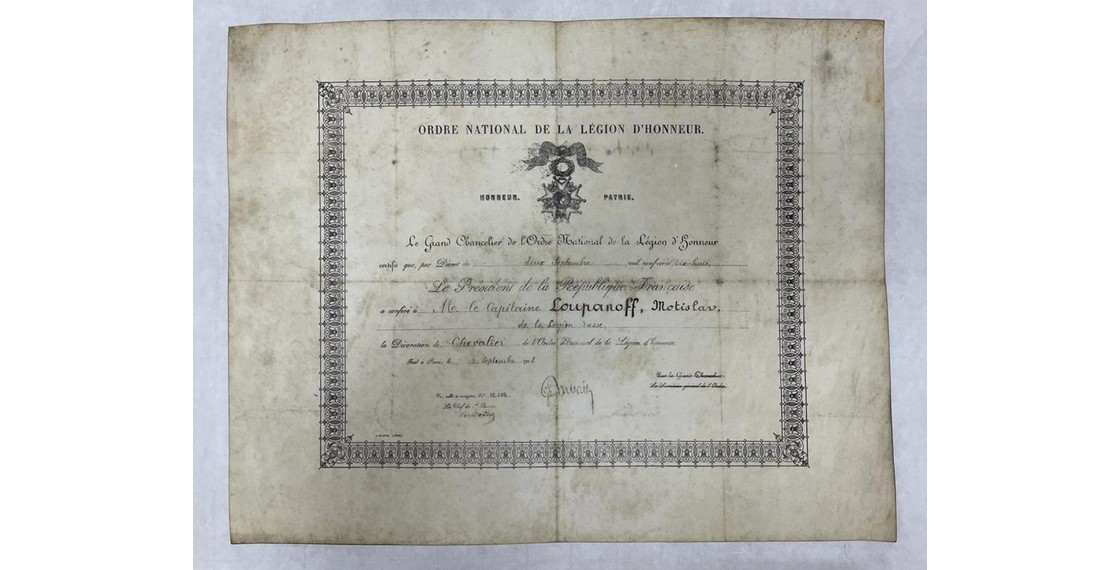 ORDRE NATIONAL DE LA LÉGION D'HONNEUR.
HONNEUR. PATRIE.
Le Grand Chancelier de l'Ordre National de la Légion d'Honneur
certifie que, par Décret du deux Septembre mil neuf cent dix-huit,
Le Président de la République Française
a conféré à M. le Capitaine Loupanoff, Motislav,
de la Légion russe,
la Décoration de Chevalier de l'Ordre National de la Légion d'Honneur
Fait à Paris, le Septembre 1918
Vu, scellé et enregistré, N°
Le Chef du 1er Bureau
Pour le Grand Chancelier
Le Secrétaire général de l'Ordre,